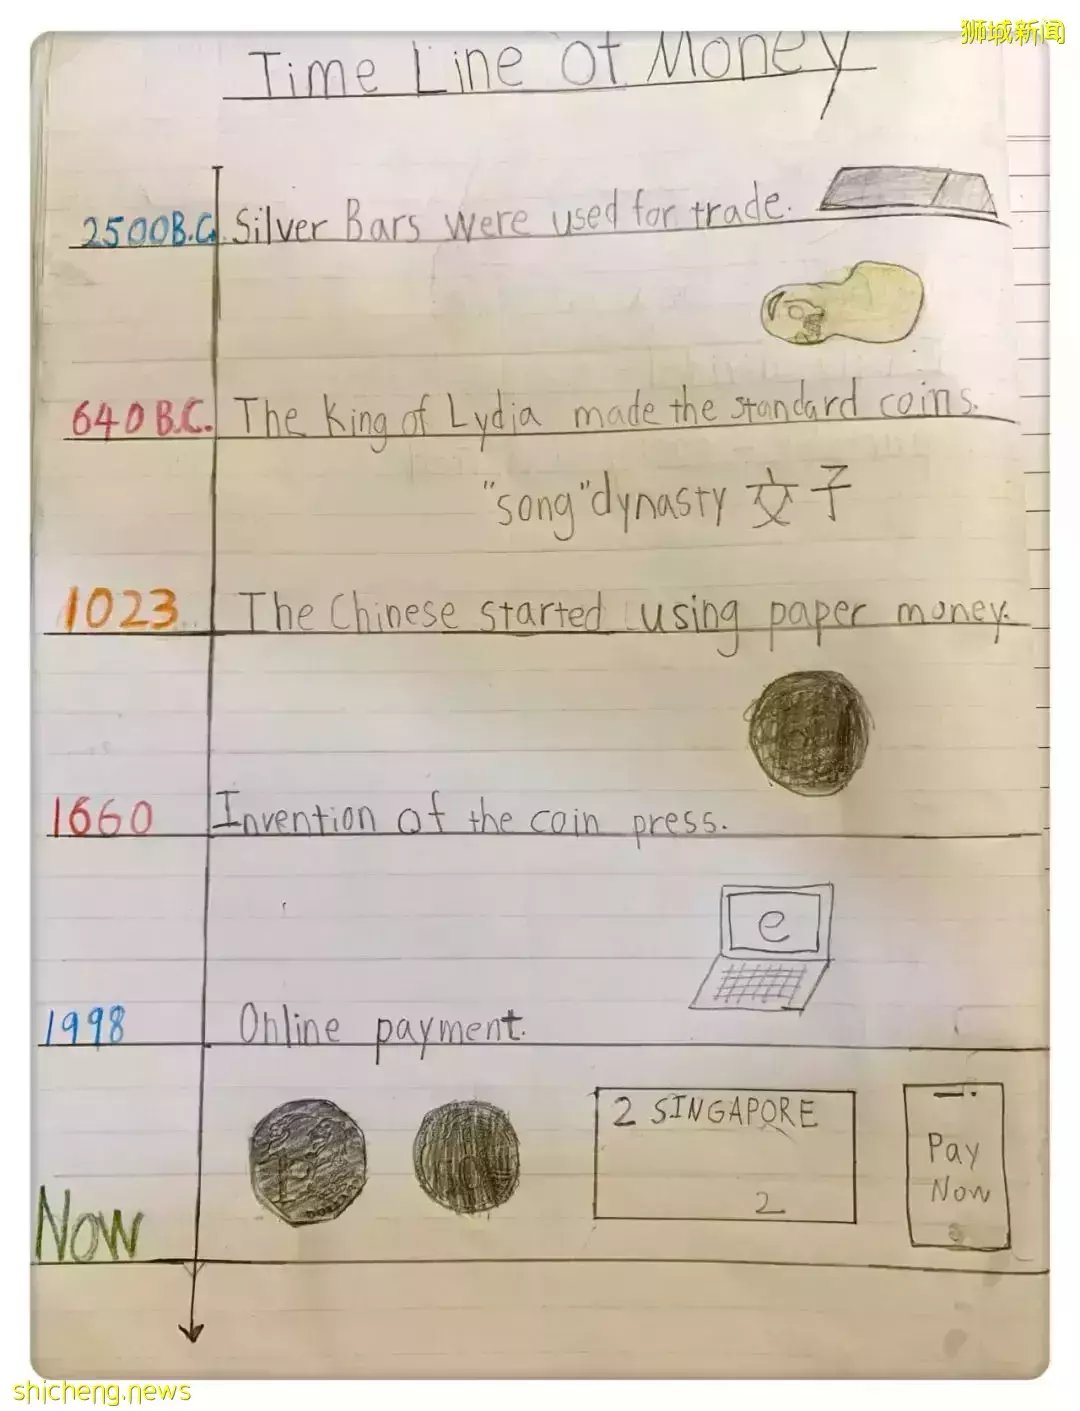 狮城新闻
Time Line of Money
2500B.C. Silver Bars were used for trade.
640 B.C. The King of Lydia made the standard coins.
"song" dynasty 交子
1023 The Chinese started using paper money.
1660 Invention of the coin press.
e
1998 Online payment.
2 SINGAPORE
2
10
Pay
Now
Now
shicheng.news